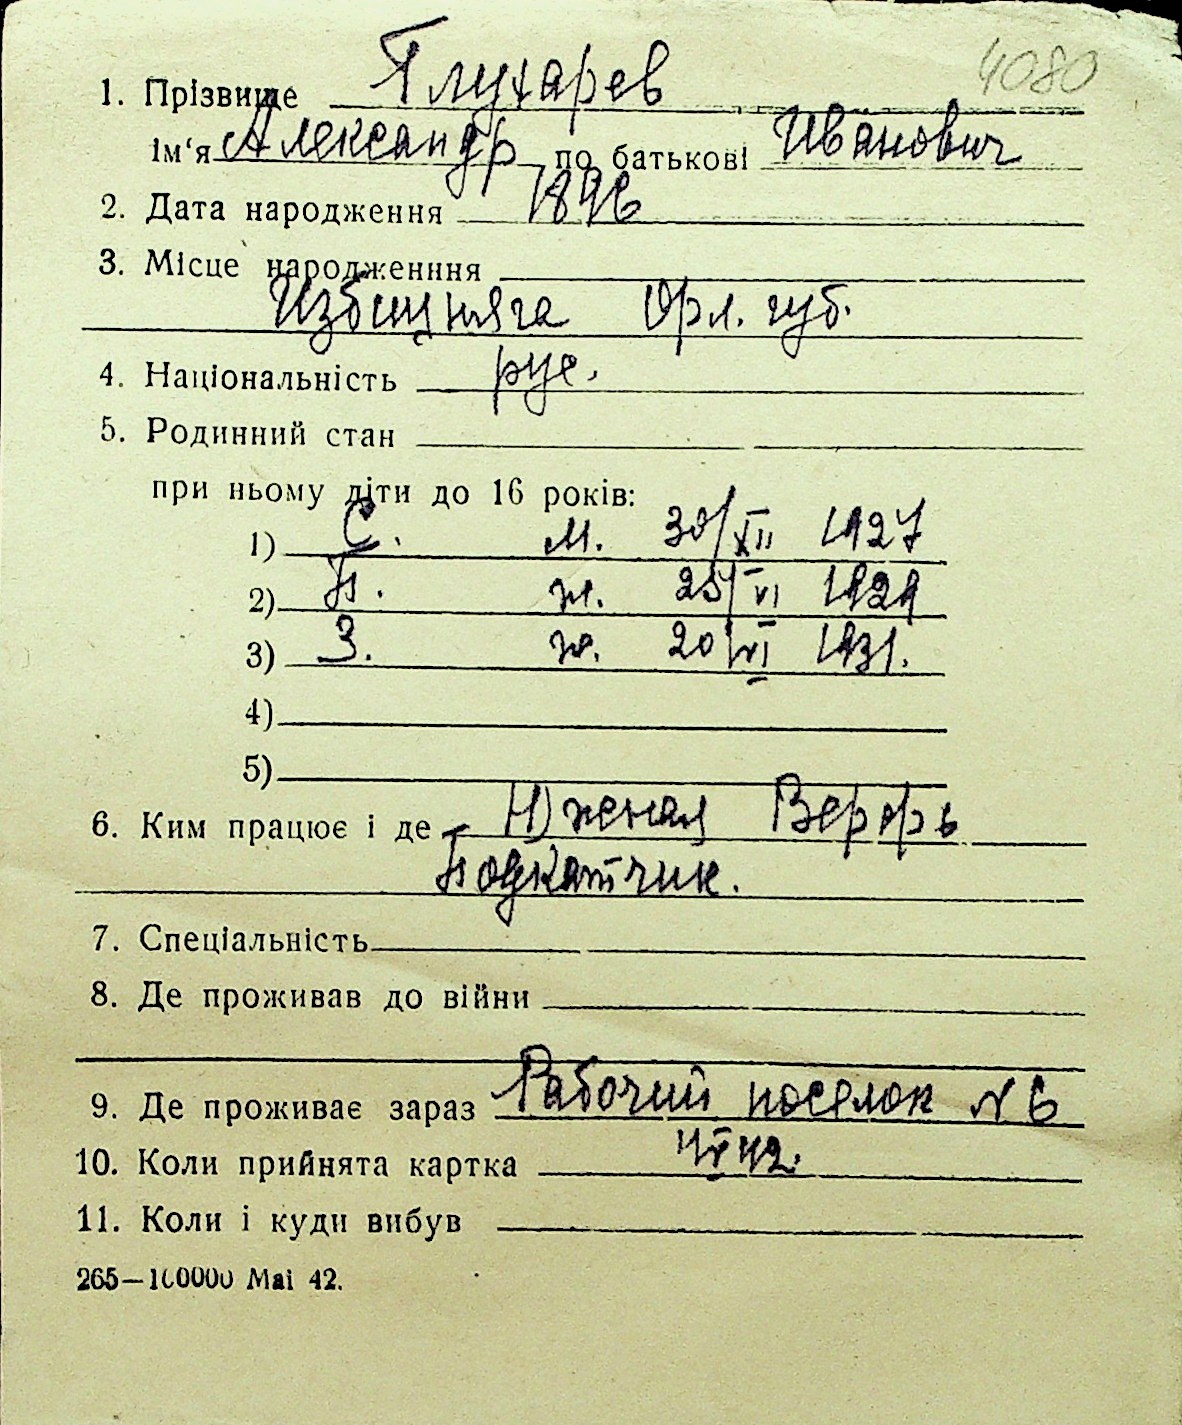 4080
1. Прізвище Глухарев
Ім'я Александр по батькові Иванович
2. Дата народження 1896
3. Місце народженння
Орл. губ.
4. Національність рус.
5. Родинний стан
при ньому діти до 16 років:
1) С. м. 30/XII 1927
2) П. ж. 25/VI 1929
3) З. ж. 20/VI 1931.
4)
5)
6. Ким працює і де Южная Верфь
Подкатчик.
7. Спеціальність
8. Де проживав до війни
9. Де проживає зараз Рабочий поселок N 6
10. Коли прийнята картка
11. Коли і куди вибув
265—100000 Mai 42.